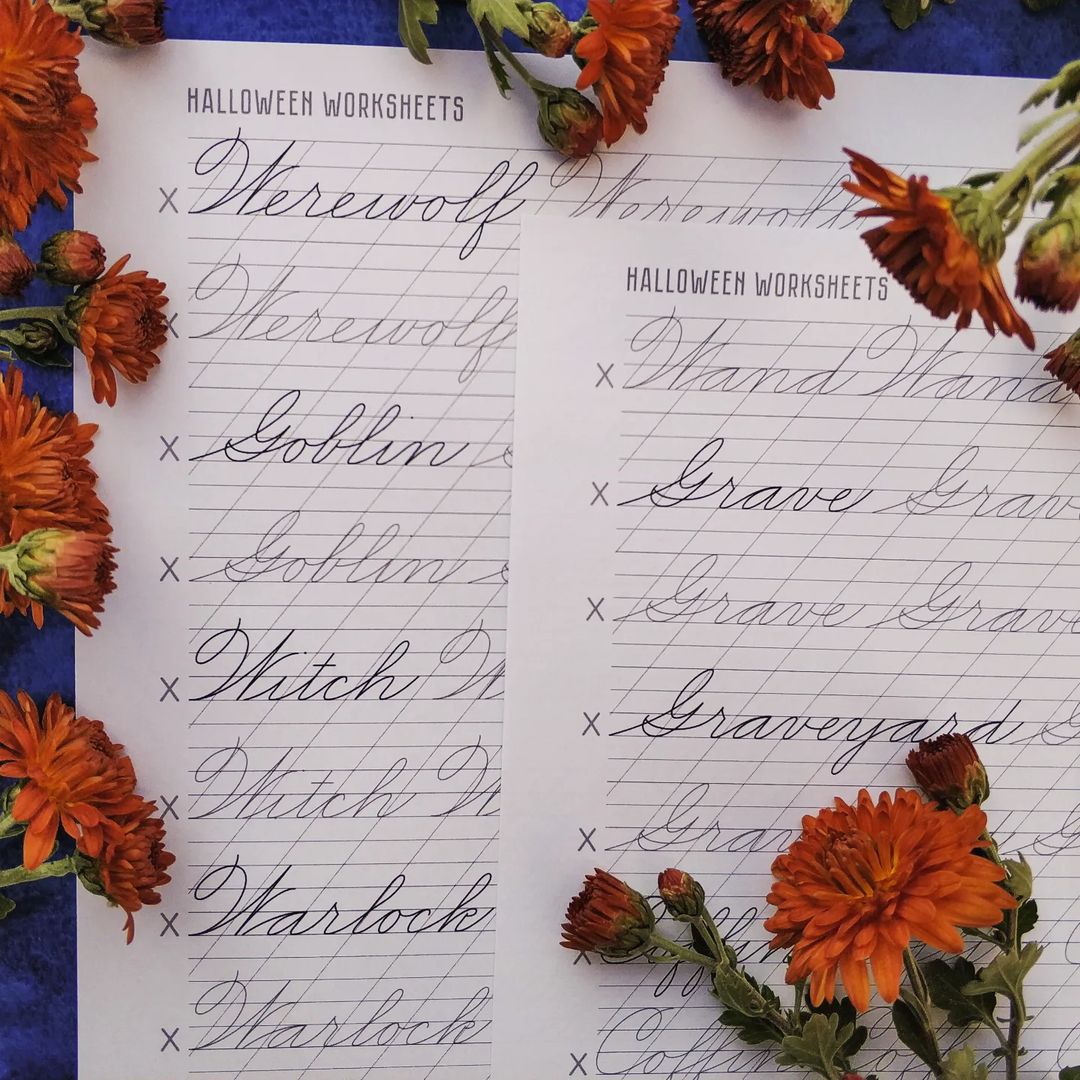 HALLOWEEN WORKSHEETS
x Werewolf Werewolf
x Werewolf
x Goblin
x Goblin
x Witch
x Witch
x Warlock
x Warlock
HALLOWEEN WORKSHEETS
x Wand Wand
x Grave Grave
x Grave Grave
x Graveyard
x
x
x Coffin